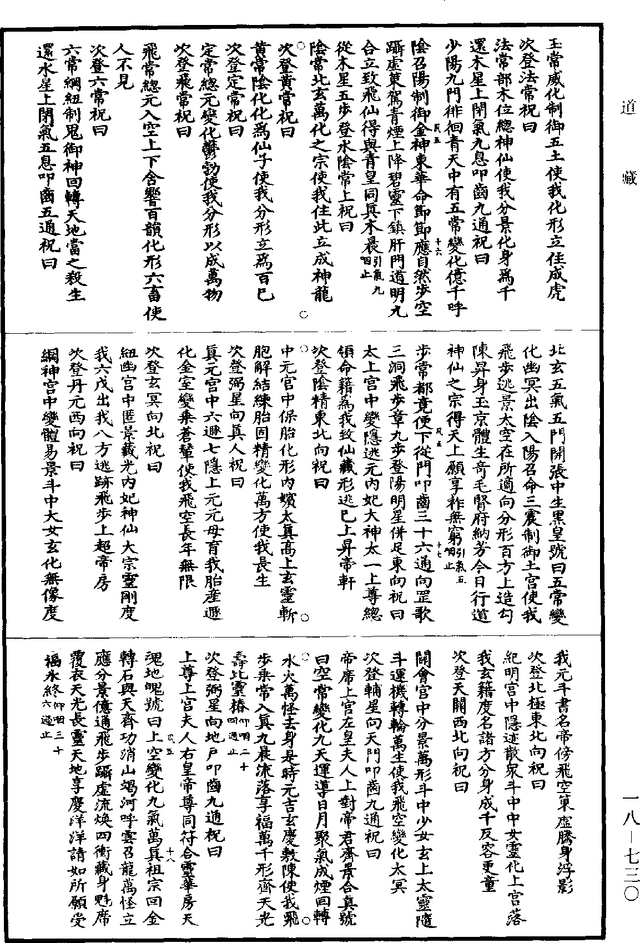 道藏
玉常威化制御五土使我化形立住成虎
次登法常祝曰
法常部木位總神仙使我分景化身爲千
還木星上閉氣九息叩齒九通祝曰
少陽九門徘徊青天中有五常變化億千呼
陰召陽制御金神東華命節節應自然步空
躡虛乘駕青煙上降碧靈下鎮肝門道明九
合立致飛仙得與青皇同真木晨引氣九咽止
從木星五步登水陰常上祝曰
陰常北玄萬化之宗使我住此立成神龍
次登黃常祝曰
黃常陰化化爲仙子使我分形立爲百巳
次登定常祝曰
定常總元變化鬱勃使我分形以成萬物
次登飛常祝曰
飛常總元入空上下含響百韻化形六畜使
人不見
次登六常祝曰
六常綱紐制鬼御神回轉天地當之殺生
還水星上閉氣五息叩齒五通祝曰
北玄五氣五門開張中生黑皇號曰五常變
化幽冥出陰入陽召命三震制御土宮使我
飛步逃景太空在所適向分形百方上造勾
陳昇身玉京體生奇毛腎府納芳今日行道
神仙之宗得天上願享祚無窮引氣五咽止
步常都竟便下從門叩齒三十六通向罡歌
三洞飛步章九步登陽明星併足東向祝曰
太上宮中變隱逃元内妃大神太一上尊總
領命籍爲我致仙藏形逃巳上昇帝軒
次登陰精東北向祝曰
中元宮中保胎化形内嬪太真高上玄靈斬
胞解結練胎固精變化萬方使我長生
次登弼星向真人祝曰
真元宮中六遯七隱上元元母育我胎產遯
化金室變乘蒼輦使我飛空長年無限
次登玄冥向北祝曰
紐幽宮中匿景藏光内妃神仙大宗靈剛度
我六戊出我八方逃跡飛步上超帝房
次登丹元西向祝曰
綱神宮中變體易景斗中大女玄化無像度
我元斗書名帝傍飛空菓虛騰身浮影
次登北極東北向祝曰
紀明宮中隱迹散眾斗中中女靈化上宮落
我玄籍度名諸方分身成千反容更童
次登天關西北向祝曰
關會宮中分景萬形斗中少女玄上太靈隨
斗運機轉輪萬生使我飛空變化太冥
次登輔星向天門叩齒九通祝曰
帝席上宮左皇夫人上對帝君齊景合真號
曰空常變化九天運導日月聚氣成煙回轉
水火萬怪去身是時元吉玄慶敷陳使我飛
步乘常入真九晨流落享福萬千形齊天光
壽比靈椿仰咽二十四過止
次登弼星向地戶叩齒九通祝曰
上尊上宮夫人右皇帝尊同符合靈華房天
魂地魄號曰上空變化九氣萬真祖宗回金
轉石與天齊功消山竭河呼雲召龍萬怪立
應分景億通飛步躡虛流煥四衝藏身魁席
覆衣天光長靈天地享慶洋洋請如所願受
福永終仰咽三十六過止
一八—七三〇